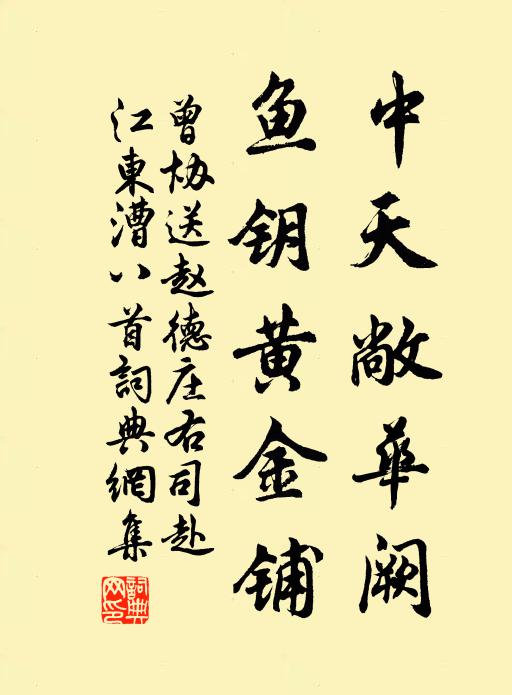 中天敞华阙
鱼钥黄金铺
曾协送赵德庄右司赴
江東漕八首詞典網集
詞典
网印